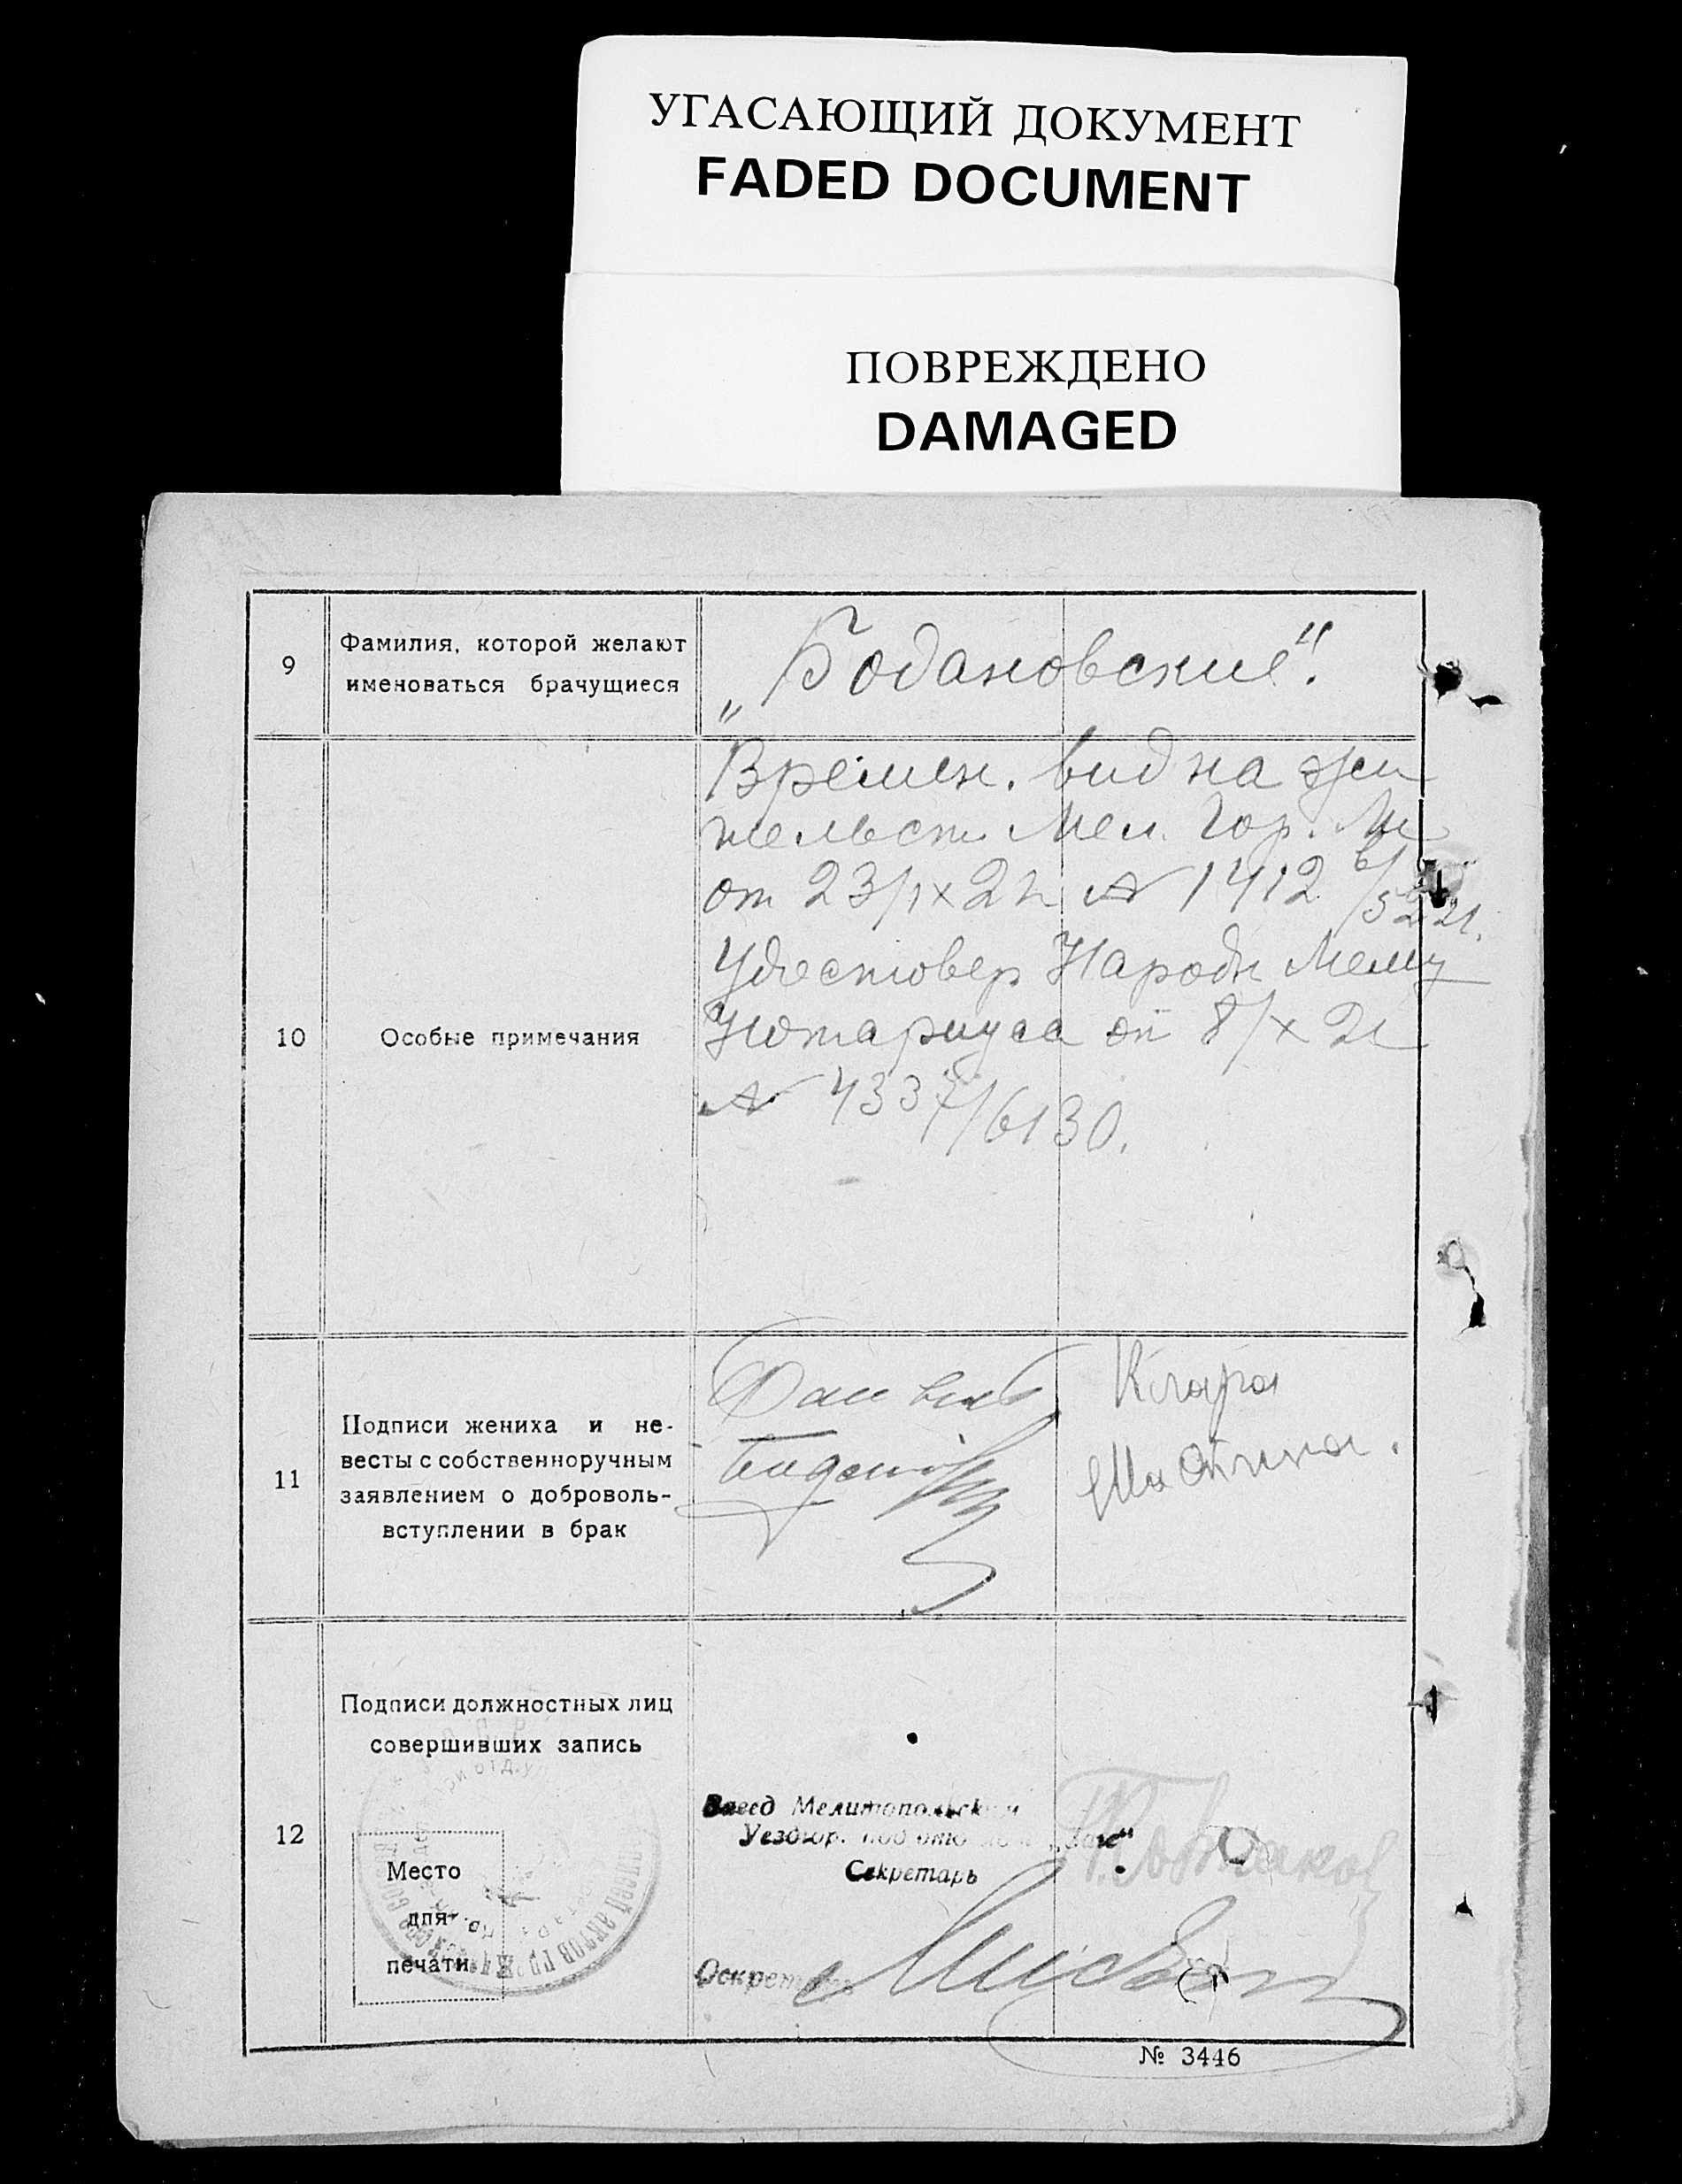 УГАСАЮЩИЙ ДОКУМЕНТ
FADED DOCUMENT
ПОВРЕЖДЕНО
DAMAGED
9
Фамилия, которой желают
именоваться брачущиеся
„Бодановские".
10
Особые примечания
Времен. вид на жи
тельст Мел. Гор. М
от 23/IX 21 № 1412 6/522 21.
Удостовер Народн Мелит
Нотариуса от 8/X 21
№ 4337/6130.
11
Подписи жениха и не-
весты с собственноручным
заявлением о доброволь-
вступлении в брак
Клара
12
Подписи должностных лиц
совершивших запись
Место
для
печати
Завед Мелитопольским
Уездгор. под отд „Загс"
Секретарь
№ 3446